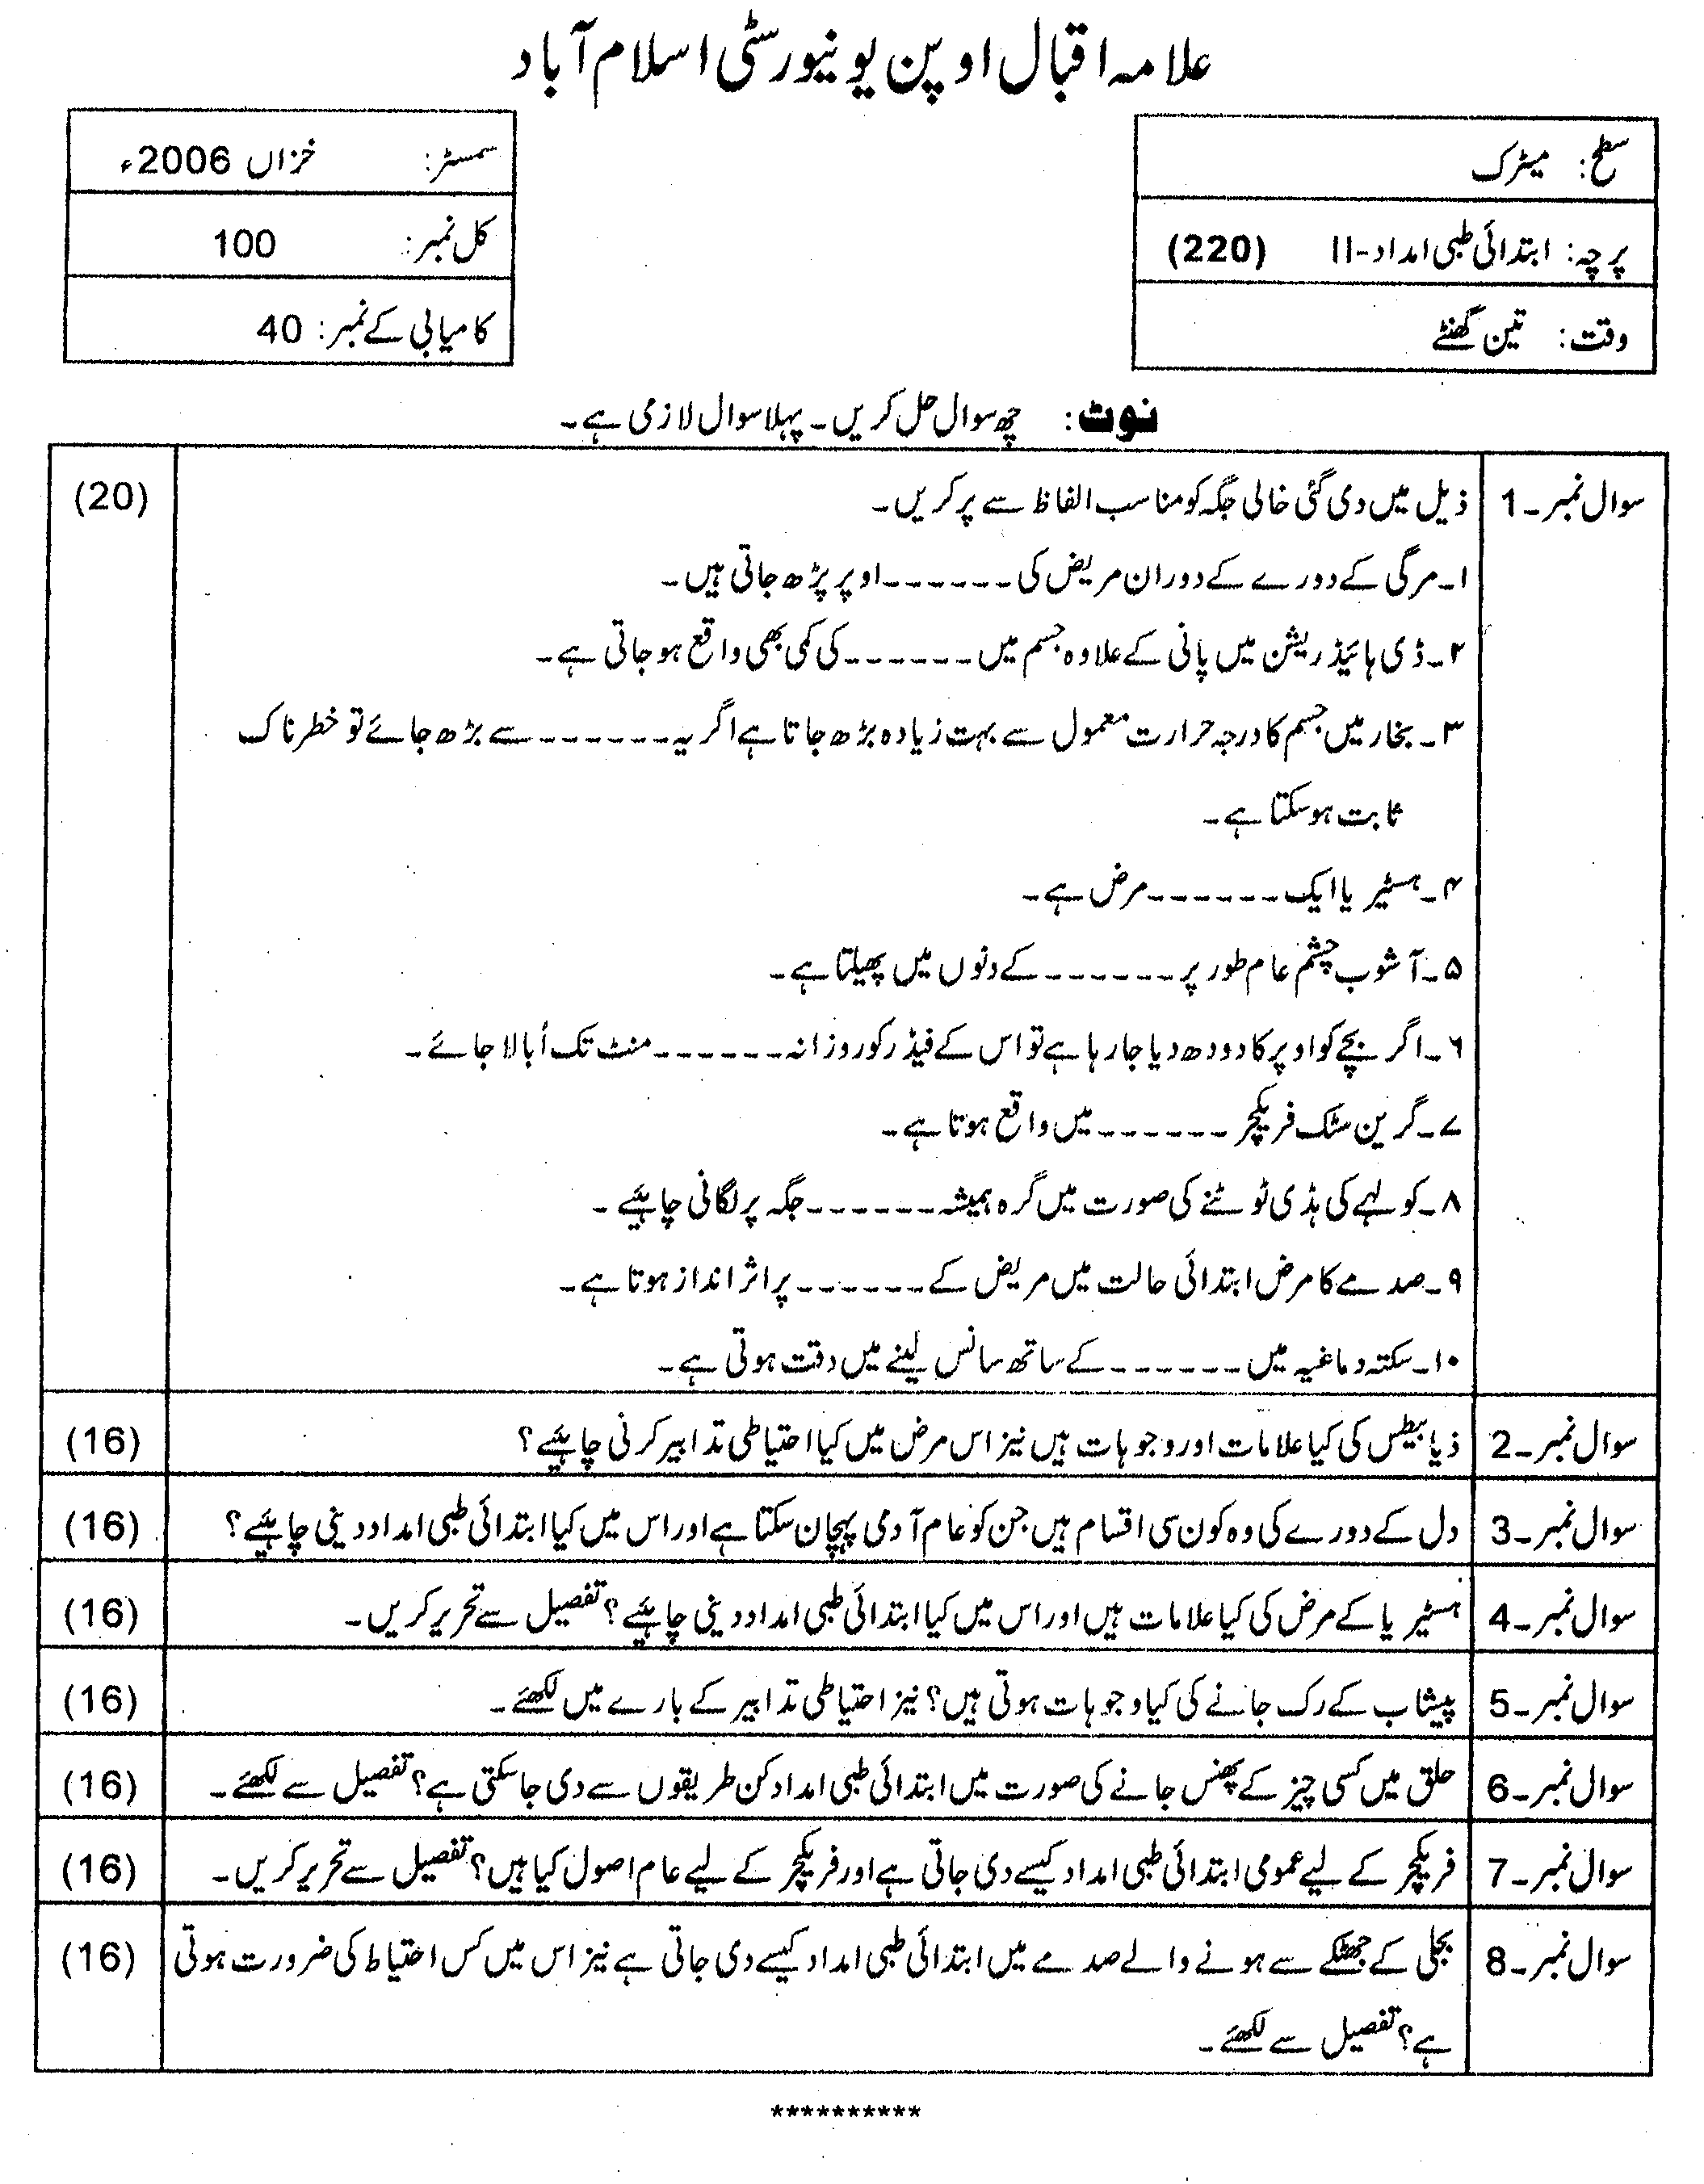 علامہ اقبال اوپن یونیورسٹی اسلام آباد
سطح: میٹرک
پرچہ: ابتدائی طبی امداد-II (220)
وقت: تین گھنٹے
سمسٹر: خزاں 2006ء
کل نمبر: 100
کامیابی کے نمبر: 40
نوٹ: چھ سوال حل کریں۔ پہلا سوال لازمی ہے۔
سوال نمبر۔1 ذیل میں دی گئی خالی جگہ کو مناسب الفاظ سے پر کریں۔ (20)
۱۔ مرگی کے دورے کے دوران مریض کی ------ اوپر پڑھ جاتی ہیں۔
۲۔ ڈی ہائیڈریشن میں پانی کے علاوہ جسم میں ------ کی کمی بھی واقع ہو جاتی ہے۔
۳۔ بخار میں جسم کا درجہ حرارت معمول سے بہت زیادہ بڑھ جاتا ہے اگر یہ ------ سے بڑھ جائے تو خطرناک
ثابت ہو سکتا ہے۔
۴۔ ہسٹیریا ایک ------ مرض ہے۔
۵۔ آشوب چشم عام طور پر ------ کے دنوں میں پھیلتا ہے۔
۶۔ اگر بچے کو اوپر کا دودھ دیا جا رہا ہے تو اس کے فیڈر کو روزانہ ------ منٹ تک اُبالا جائے۔
۷۔ گرین سٹک فریکچر ------ میں واقع ہوتا ہے۔
۸۔ کولہے کی ہڈی ٹوٹنے کی صورت میں گرہ ہمیشہ ------ جگہ پر لگانی چاہیئے۔
۹۔ صدمے کا مرض ابتدائی حالت میں مریض کے ------ پر اثر انداز ہوتا ہے۔
۱۰۔ سکتہ دماغیہ میں ------ کے ساتھ سانس لینے میں دقت ہوتی ہے۔
سوال نمبر۔2 ذیابیطس کی کیا علامات اور وجوہات ہیں نیز اس مرض میں کیا احتیاطی تدابیر کرنی چاہیئے؟ (16)
سوال نمبر۔3 دل کے دورے کی وہ کون سی اقسام ہیں جن کو عام آدمی پہچان سکتا ہے اور اس میں کیا ابتدائی طبی امداد دینی چاہیئے؟ (16)
سوال نمبر۔4 ہسٹیریا کے مرض کی کیا علامات ہیں اور اس میں کیا ابتدائی طبی امداد دینی چاہیئے؟ تفصیل سے تحریر کریں۔ (16)
سوال نمبر۔5 پیشاب کے رک جانے کی کیا وجوہات ہوتی ہیں؟ نیز احتیاطی تدابیر کے بارے میں لکھئے۔ (16)
سوال نمبر۔6 حلق میں کسی چیز کے پھنس جانے کی صورت میں ابتدائی طبی امداد کن طریقوں سے دی جا سکتی ہے؟ تفصیل سے لکھئے۔ (16)
سوال نمبر۔7 فریکچر کے لیے عمومی ابتدائی طبی امداد کیسے دی جاتی ہے اور فریکچر کے لیے عام اصول کیا ہیں؟ تفصیل سے تحریر کریں۔ (16)
سوال نمبر۔8 بجلی کے جھٹکے سے ہونے والے صدمے میں ابتدائی طبی امداد کیسے دی جاتی ہے نیز اس میں کس احتیاط کی ضرورت ہوتی (16)
ہے؟ تفصیل سے لکھئے۔
**********